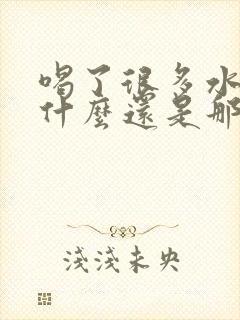 喝了很多水
什麼還是那
淺淺未央